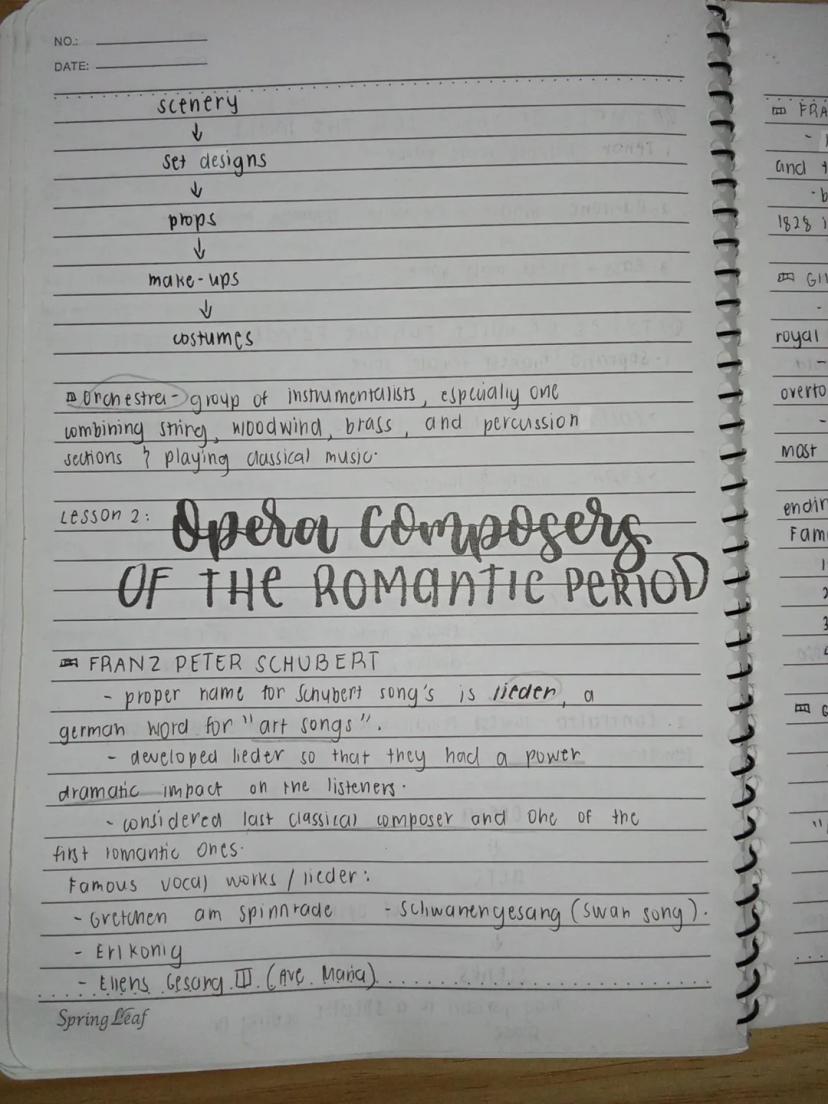 NO.:
DATE:
scenery
↓
set designs
↓
props
↓
make-ups
↓
costumes
Orchestra - group of instrumentalists, especially one
combining string, woodwind, brass, and percussion
sections & playing classical music.
Lesson 2: Opera Composers
OF THE ROMANTIC PERIOD
FRANZ PETER SCHUBERT
- proper name for Schubert song's is lieder, a
german word for "art songs".
- developed lieder so that they had a power
dramatic impact on the listeners.
- considered last classical composer and one of the
first romantic ones.
Famous vocal works / lieder:
- Gretchen am spinnrade - Schwanengesang (swan song).
- Erlkonig
- Ellens Gesang III (Ave Maria)
Spring Leaf
FRA
and
1828
royal
overto
most
endin
Fam
1
2
3